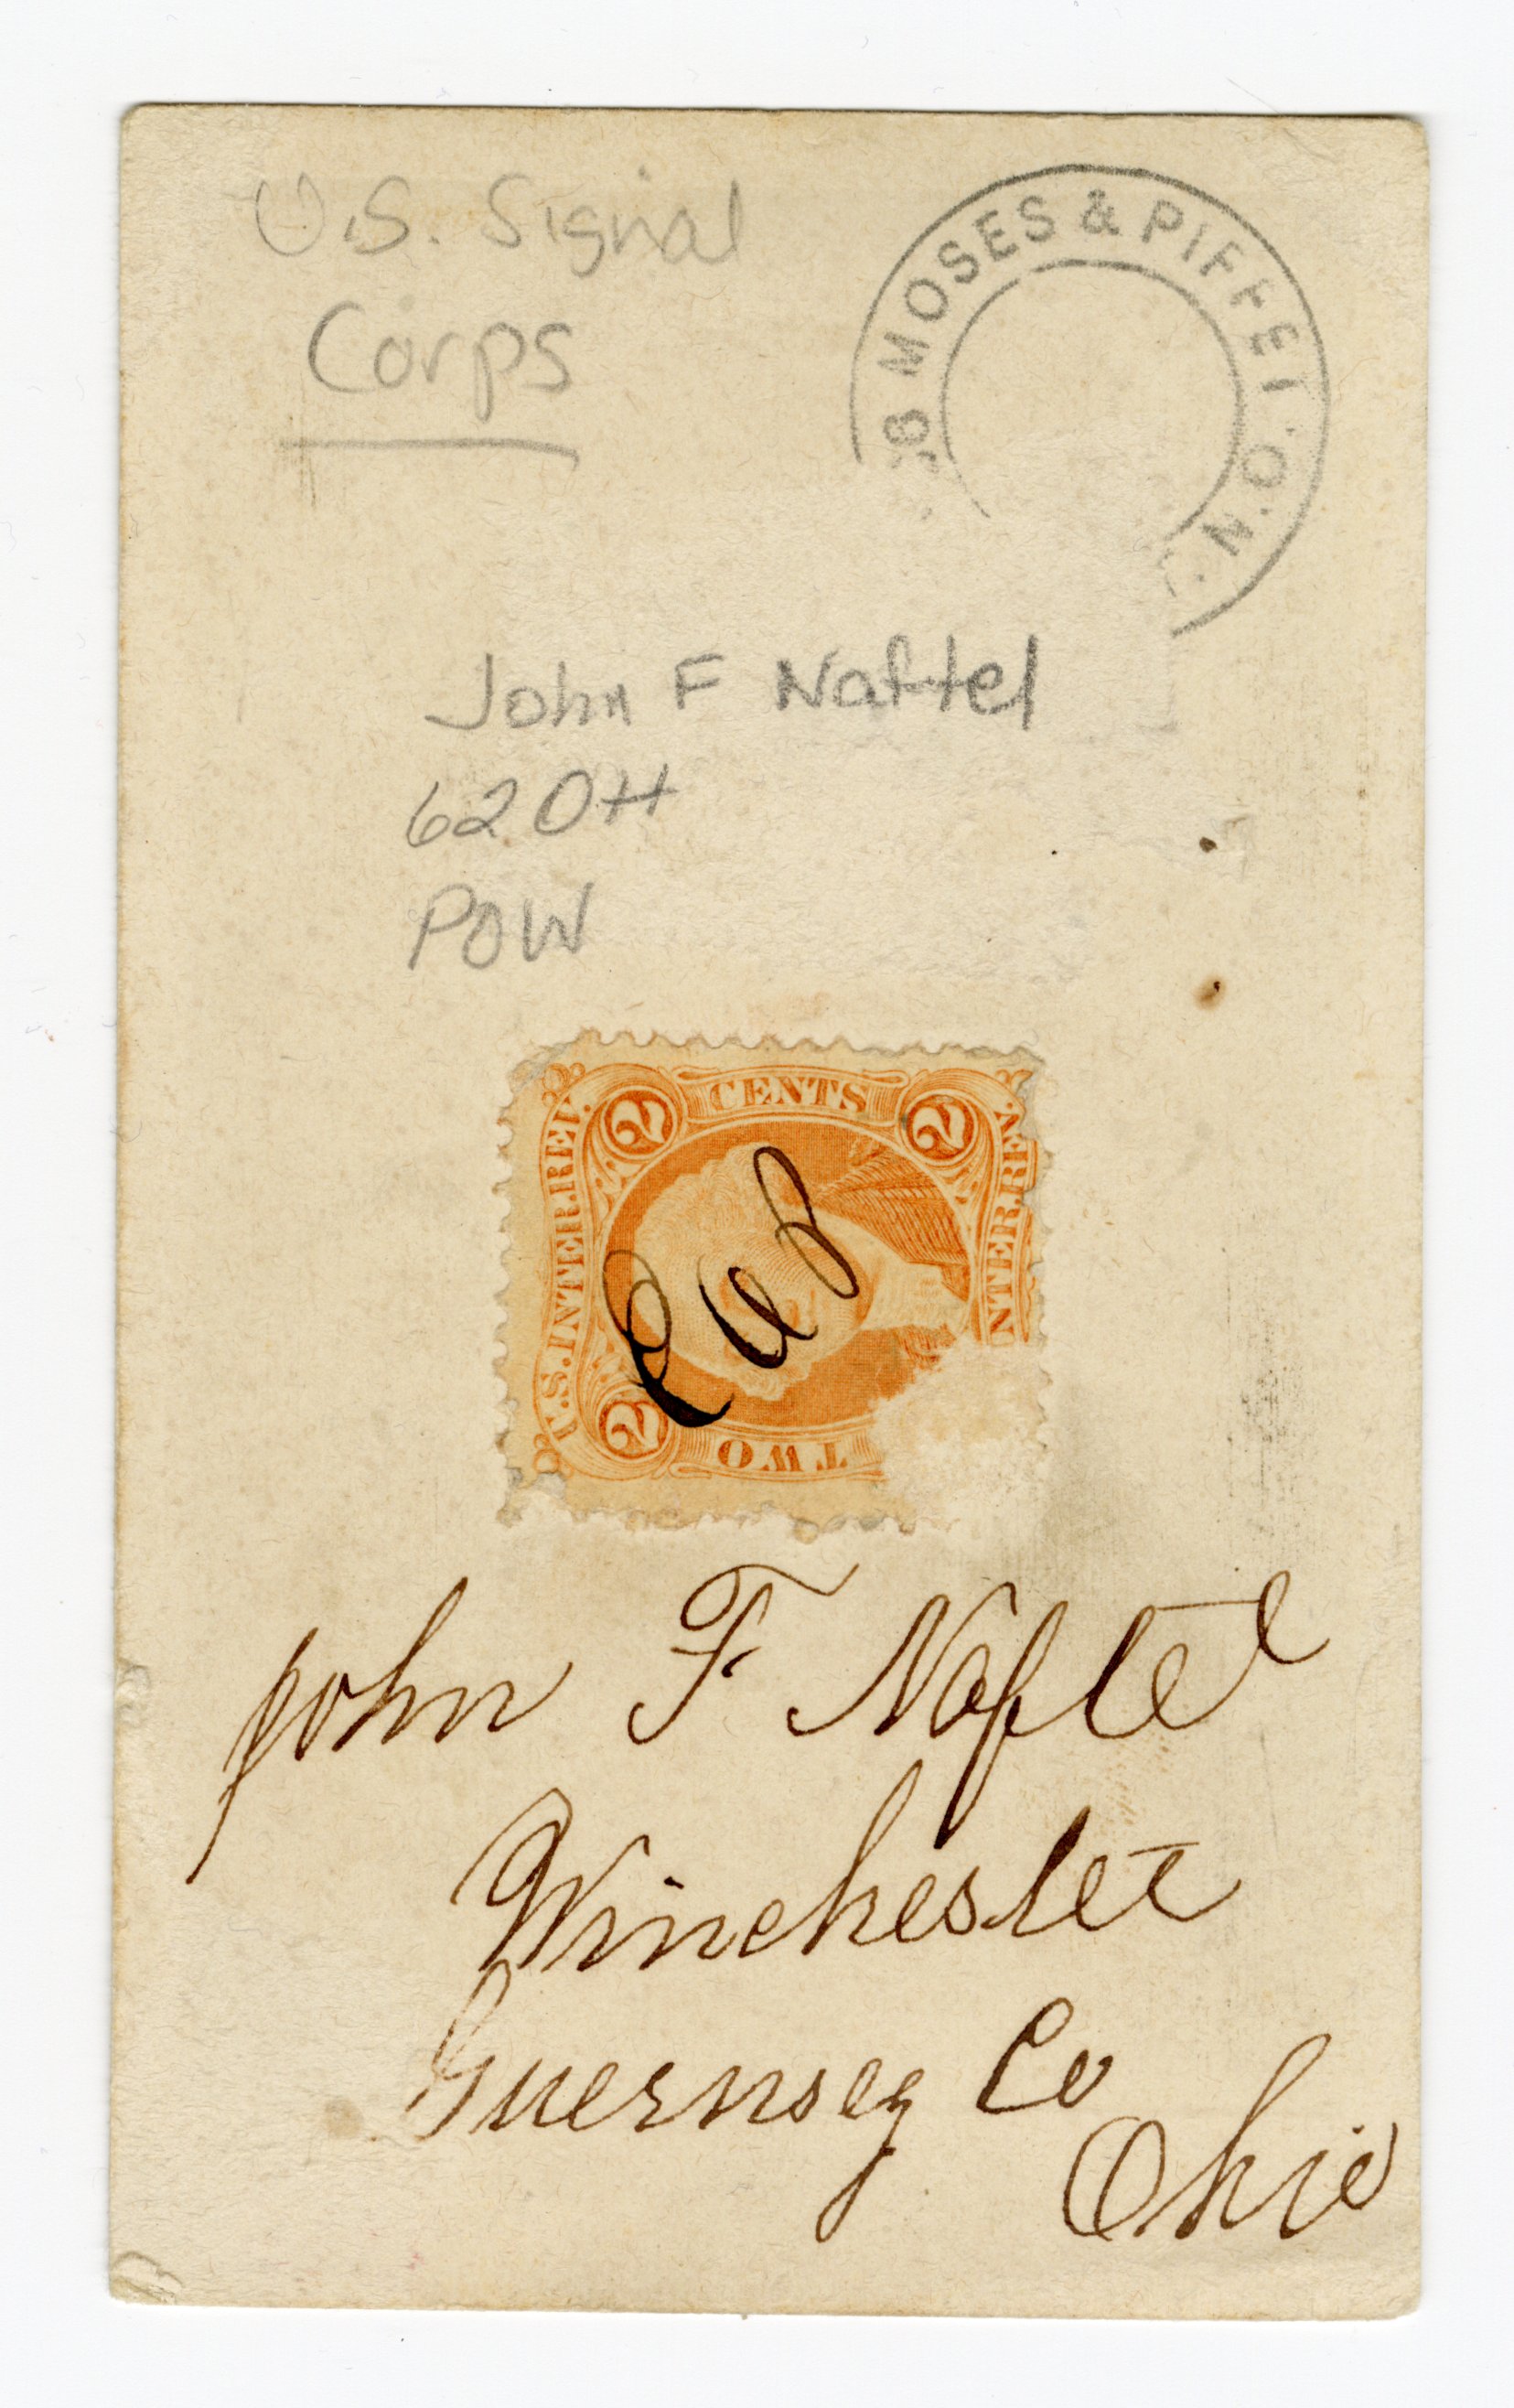 U.S. Signal
Corps
MOSES & PIFFET N.O.
John F Naftel
62 OH
POW
CENTS
2
2
U.S. INTER. REV.
NTER. REV.
2
TWO
John F Naftel
Winchester
Guernsey Co
Ohio